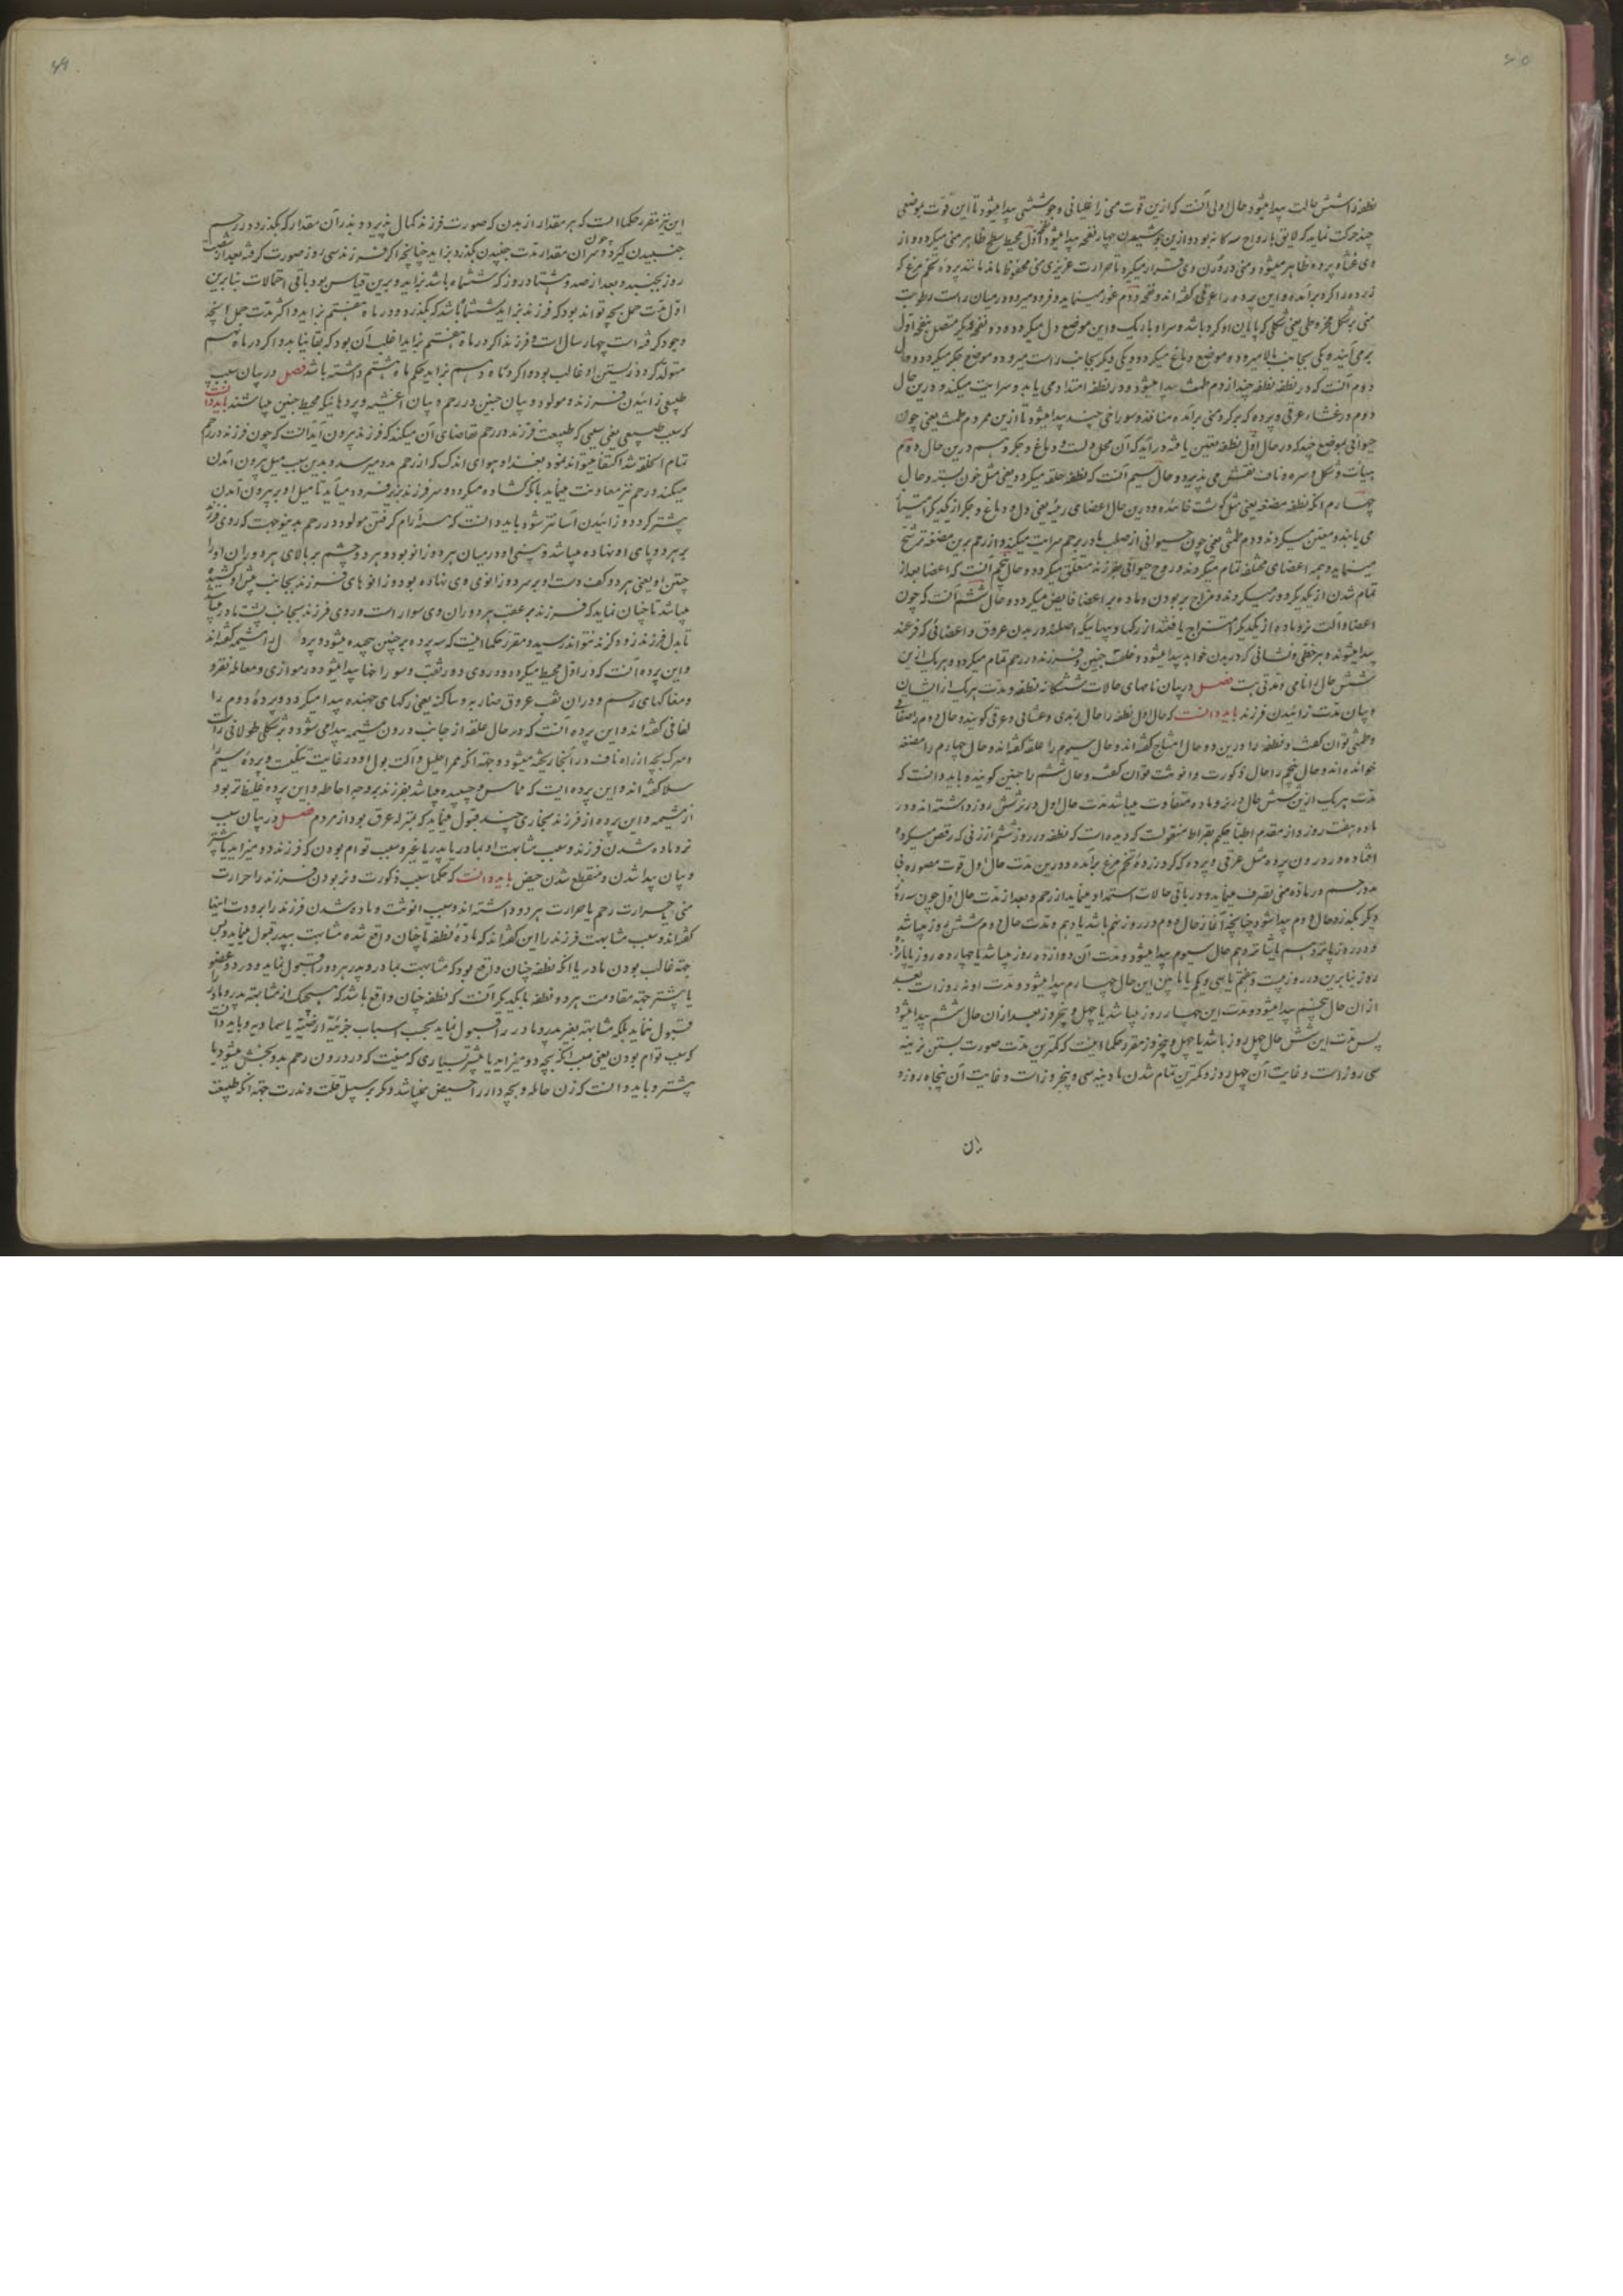 نطفه را شش حالت پیدا میشود حال اولی آنست که ازین قوت منی را غلیانی و جوششی پیدا میشود تا این قوت بموضعی
چند حرکت نماید که لایق بارواح سه کانه بود و ازین جوشیدن چهار نفخه پیدا میشود اول محیط سطح ظاهر منی میکردد و از
وی غشا و پرده ظاهر میشود و منی در درون وی قرار میکیرد تا حرارت غریزی منی محفوظ ماند مانند پرده تخم مرغ که
زرده را کرد برآمده و این پرده را عرقی کفته اند و نفخه دوم غور مینماید و فرو میرود و در میان راست رطوبت
منی بر شکل مخروطی یعنی شکلی که پایان او کرد باشد و سر او باریک و این موضع دل میکردد و دو نفخه دیکر متصل بنفخه اول
برمی آیند یکی بجانب بالا میرود و موضع دماغ میکردد و یکی دیکر بجانب راست میرود و موضع جکر میکردد و حال
دوم آنست که در نطفه نقطه چند از دم طمث پیدا میشود و در نطفه امتداد می یابد و سرایت میکند و درین حال
دوم در غشاء عرقی و پرده که بر کرد منی برآمده منافذ و سوراخی چند پیدا میشود تا ازین ممر دم طمث یعنی خون
حیوانی بموضع چند که در حال اول نطفه تعین یافته در آید که آن محل دلست و دماغ و جکر و هم درین حال دوم
هیأت و شکل و سره و ناف نقش می پذیرد و حال سیم آنست که نطفه علقه میکردد یعنی مثل خون بسته و حال
چهارم آنکه نطفه مضغه یعنی مثل کوشت خائیده و درین حال اعضای رئیسه یعنی دل و دماغ و جکر از یکدیکر امتیاز
می یابند و معین میکردند و دم طمثی یعنی خون حیوانی از صلب مادر برحم سرایت میکند و از رحم برین مضغه ترشح
مینماید و همه اعضای مختلفه تمام میکردند و روح حیوانی بفرزند متعلق میکردد و حال پنجم آنست که اعضا بعد از
تمام شدن از یکدیکر دور میکردند و مزاج نر بودن و ماده بر اعضا فایض میکردد و حال ششم آنست که چون
اعضا و آلت نر و ماده از یکدیکر امتزاج یافتند از رکها و پیهائیکه اصلند در بدن عروق و اعضائی که فرعند
پیدا میشوند و هر خطی و نشانی که در بدن خواهد پیدا میشود و خلقت جنین و فرزند در رحم تمام میکردد و هر یک از این
شش حال را نامی و مدتی هست فصل در بیان نامهای حالات ششکانه نطفه و مدت هر یک از ایشان
و بیان مدت زائیدن فرزند باید دانست که حال اول نطفه را حال زبدی و غشائی و عرقی کویند و حال دوم را نقطی
و طمثی توان کفت و نطفه را درین دو حال امشاج کفته اند و حال سیوم را علقه کفته اند و حال چهارم را مضغه
خوانده اند و حال پنجم را حال ذکورت و انوثت توان کفت و حال ششم را جنین کویند و باید دانست که
مدت هر یک ازین شش حال در نر و ماده متفاوت میباشد مدت حال اول در نر شش روز داشته اند و در
ماده هفت روز و از مقدم اطبا حکیم بقراط منقولست که دیده است که نطفه در روز ششم از زنی که رقص میکرد
افتاده و در درون پرده مثل عرقی و پرده که کرد زرده تخم مرغ برآمده و درین مدت حال اول قوت مصوره بی
مدد رحم در ماده منی تصرف مینماید و در باقی حالات استمداد مینماید از رحم و بعد از مدت حال اول چون سه روز
دیکر بکذرد حال دوم پیدا شود چنانچه آغاز حال دوم در روز نهم باشد یا دهم و مدت حال دوم شش روز میباشد
و در روز پانزدهم یا شانزدهم حال سیوم پیدا میشود و مدت آن دوازده روز میباشد یا چهارده روز یا پانزده
روز بنابرین در روز بیست و هفتم یا سی و یکم یا مابین این حال چهارم پیدا میشود و مدت او نه روز است بعد
از آن حال پنجم پیدا میشود و مدت این چهار روز میباشد یا چهل و پنج روز بعد از آن حال ششم پیدا میشود
پس مدت این شش حال چهل روز باشد یا چهل و پنج روز مقرر حکما اینست که کمترین مدت صورت بستن نرینه
سی روز است و غایت آن چهل روز و کمترین تمام شدن مادینه سی و پنج روز است و غایت آن پنجاه روز و
این نیز مقرر حکما است که هر مقدار از بدن که صورت فرزند کمال پذیرد و بقدر آن مقدار که بکذرد در رحم
جنبیدن کیرد و چون سر آن مقدار مدت جنبیدن بکذرد بزاید چنانچه اکر فرزند سی روز صورت کرفته بعد از شصت
روز بجنبد و بعد از صد و هشتاد روز که ششماه باشد بزاید و برین قیاس بود باقی احتمالات بنابرین
اول مدت حمل بچه تواند بود که فرزند بزاید ششماه باشد که بکذرد و در ماه هفتم بزاید و اکثر مدت حمل آنچه
وجود کرفته است چهار سال است و فرزند اکر در ماه هفتم بزاید اغلب آن بود که بقا نیابد و اکر در ماه نهم
متولد کردد زیستن او غالب بود و اکر در ماه دهم بزاید حکم ماه هشتم داشته باشد فصل در بیان سبب
طبیعی زائیدن فرزند و مولود و بیان جنین در رحم و بیان اغشیه و پردهائیکه محیط جنین میباشند باید دانست
که سبب طبیعی یعنی سببی که طبیعت فرزند در رحم تقاضای آن میکند که فرزند بیرون آید آنست که چون فرزند در رحم
تمام الخلقه شد اکتفا نمیتواند نمود بغذا و هوای اندک که از رحم بدو میرسد و بدین سبب میل بیرون آمدن
میکند و رحم نیز معاونت مینماید بآنکه کشاده میکردد و سر فرزند بزیر فرود میآید تا میل او به بیرون آمدن
بیشتر کردد و زائیدن آسانتر شود باید دانست که آرام کرفتن مولود در رحم بدینوجهست که روی فرزند
بر هر دو پای او نهاده میباشد و بینی او در میان هر دو زانو بود و هر دو چشم بر بالای هر دو ران او را
چنین او یعنی هر دو کف دست او بر سر دو زانوی وی نهاده بود و زانوهای فرزند بجانب پیش او کشیده
میباشد تا چنان نماید که فرزند بر عقب هر دو ران وی سوار است و روی فرزند بجانب پشت مادر میباشد
تا بدل فرزند زود کزند نتواند رسید و مقرر حکما اینست که سه پرده بر جنین پیچیده میشود و پرده اول را مشیمه کفته اند
و این پرده آنست که در اول محیط میکردد و در وی دو ثقب و سوراخها پیدا میشود در موازی
ومغاکهای رحم و در آن ثقب عروق ضاربه و ساکنه یعنی رکهای جهنده پیدا میکردد و پرده دوم را
لفافی کفته اند و این پرده آنست که در حال علقه از جانب درون مشیمه پیدا می شود و بر شکلی طولانی است
و سرکه بچه از راه ناف در آنجا ریخته میشود و جهة آنکه ممر احلیل و آلت بول او در غایت تنکیست و پرده سیم
سلا کفته اند و این پرده ایست که مماس و چسبیده میباشد بفرزند بر وجه احاطه و این پرده غلیظ تر بود
از مشیمه و این پرده از فرزند بخاری چند قبول مینماید که بمنزله عرق بود از مردم فصل در بیان سبب
نر و ماده شدن فرزند و سبب مشابهت او بمادر یا پدر یا غیر و سبب توام بودن که فرزند دو میزاید یا بیشتر
و بیان پیدا شدن و منقطع شدن حیض باید دانست که حکما سبب ذکورت و نر بودن فرزند را حرارت
منی یا حرارت رحم یا حرارت هر دو داشته اند و سبب انوثت و ماده شدن فرزند را برودت اینها
کفته اند و سبب مشابهت فرزند را این کفته اند که ماده نطفه تا چنان واقع شده مشابهت بپدر قبول مینماید و بس
جهة غالب بودن مادر یا آنکه نطفه چنان واقع بود که مشابهت بمادر و پدر هر دو را قبول نماید و در دو عضو
یا بیشتر جهة مقاومت هر دو نطفه با یکدیکر آنست که نطفه چنان واقع باشد که هیچیک از مشابهت پدر و مادر را
قبول ننماید بلکه مشابهت بغیر پدر و مادر را قبول نماید بحسب اسباب جزئیه ارضیه یا سماویه و باید دانست
که سبب توام بودن یعنی سبب آنکه بچه دو میزاید یا بیشتر بسیاری که منیست که در درون رحم بدو بخش میشود یا
بیشتر و باید دانست که زن حامله و بچه دار را حیض نمیباشد و مکر بر سبیل قلت و ندرت جهة آنکه طبیعت